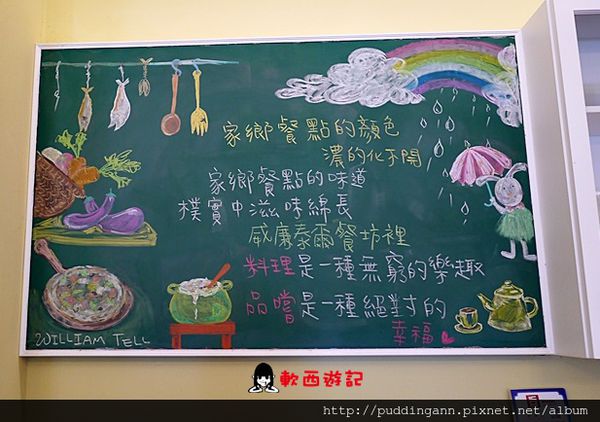 家鄉餐點的顏色
濃的化不開
家鄉餐點的味道
樸實中滋味綿長
威廉泰爾餐坊裡
料理是一種無窮的樂趣
品嚐是一種絕對的
幸福
WILLIAM TELL
軟西遊記
http://puddingann.pixnet.net/album